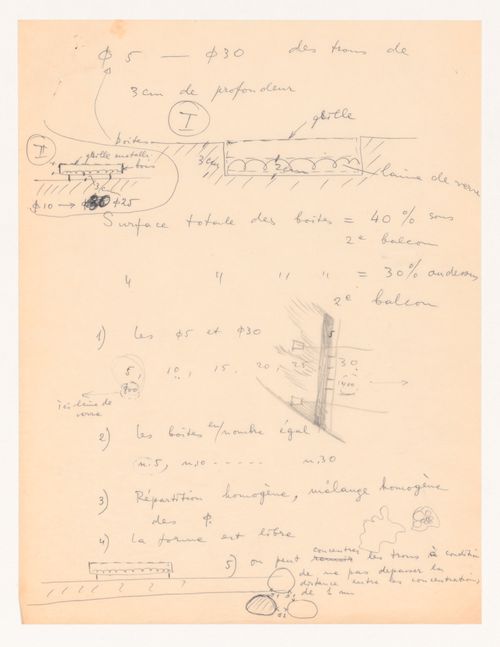 ϕ 5 — ϕ30 des trous de
3 cm de profondeur
I
grille
II
boîtes
grille métall.
trous
3 cm
3/c
2 cm
laine de verre
ϕ10 → ϕ25
Surface totale des boîtes = 40 % sous
2e balcon
" " " " = 30 % au dessus
2e balcon
1) les ϕ5 et ϕ30
5, 10, 15. 20, 25 30
5
laine de
verre
2) les boîtes en nombre égal
n.5, n.10 ----- n.30
3) Répartition homogène, mélange homogène
des ϕ.
4) la forme est libre
5) on peut concentrer les trous à condition
de ne pas dépasser la
distance entre les concentrations
de 5 mm